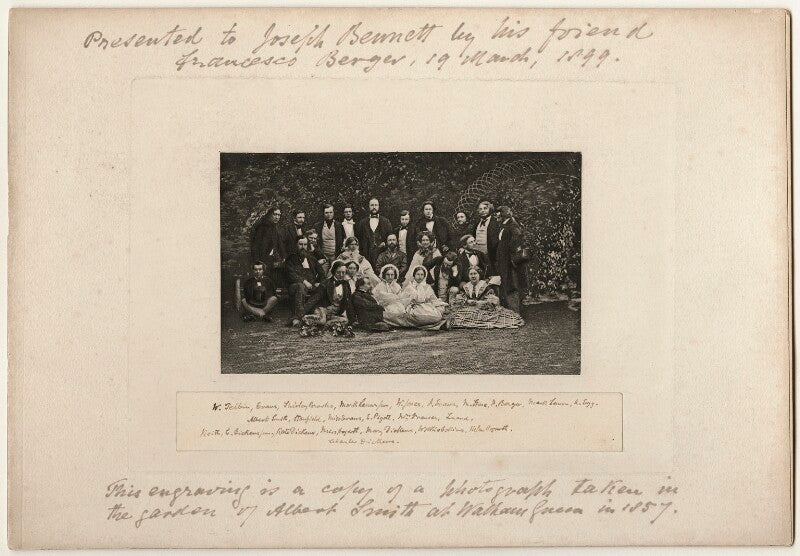 Presented to Joseph Bennett by his friend
Francesco Berger, 19 March, 1899.
W. Telbin, Evans, Shirley Brooks, Mark Lemon jun, F. Berger, Mark Lemon, A. Egg.
Albert Smith, Stanfield, Miss Evans, E. Pigott, Luard.
C. Dickens jun, Kate Dickens, Miss Hogarth, Mary Dickens, Wilkie Collins, Helen Hogarth.
Charles Dickens.
This engraving is a copy of a photograph taken in
the garden of Albert Smith at Walham Green in 1857.